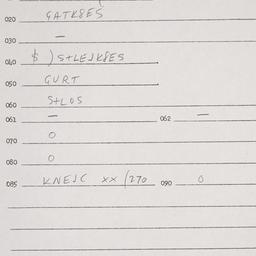 020 GATKSES
030 —
040 $ ) S+LEJKSES
050 GURT
060 S+LOS
061 — 062 —
070 0
080 0
085 KNEJC XX /270 090 0